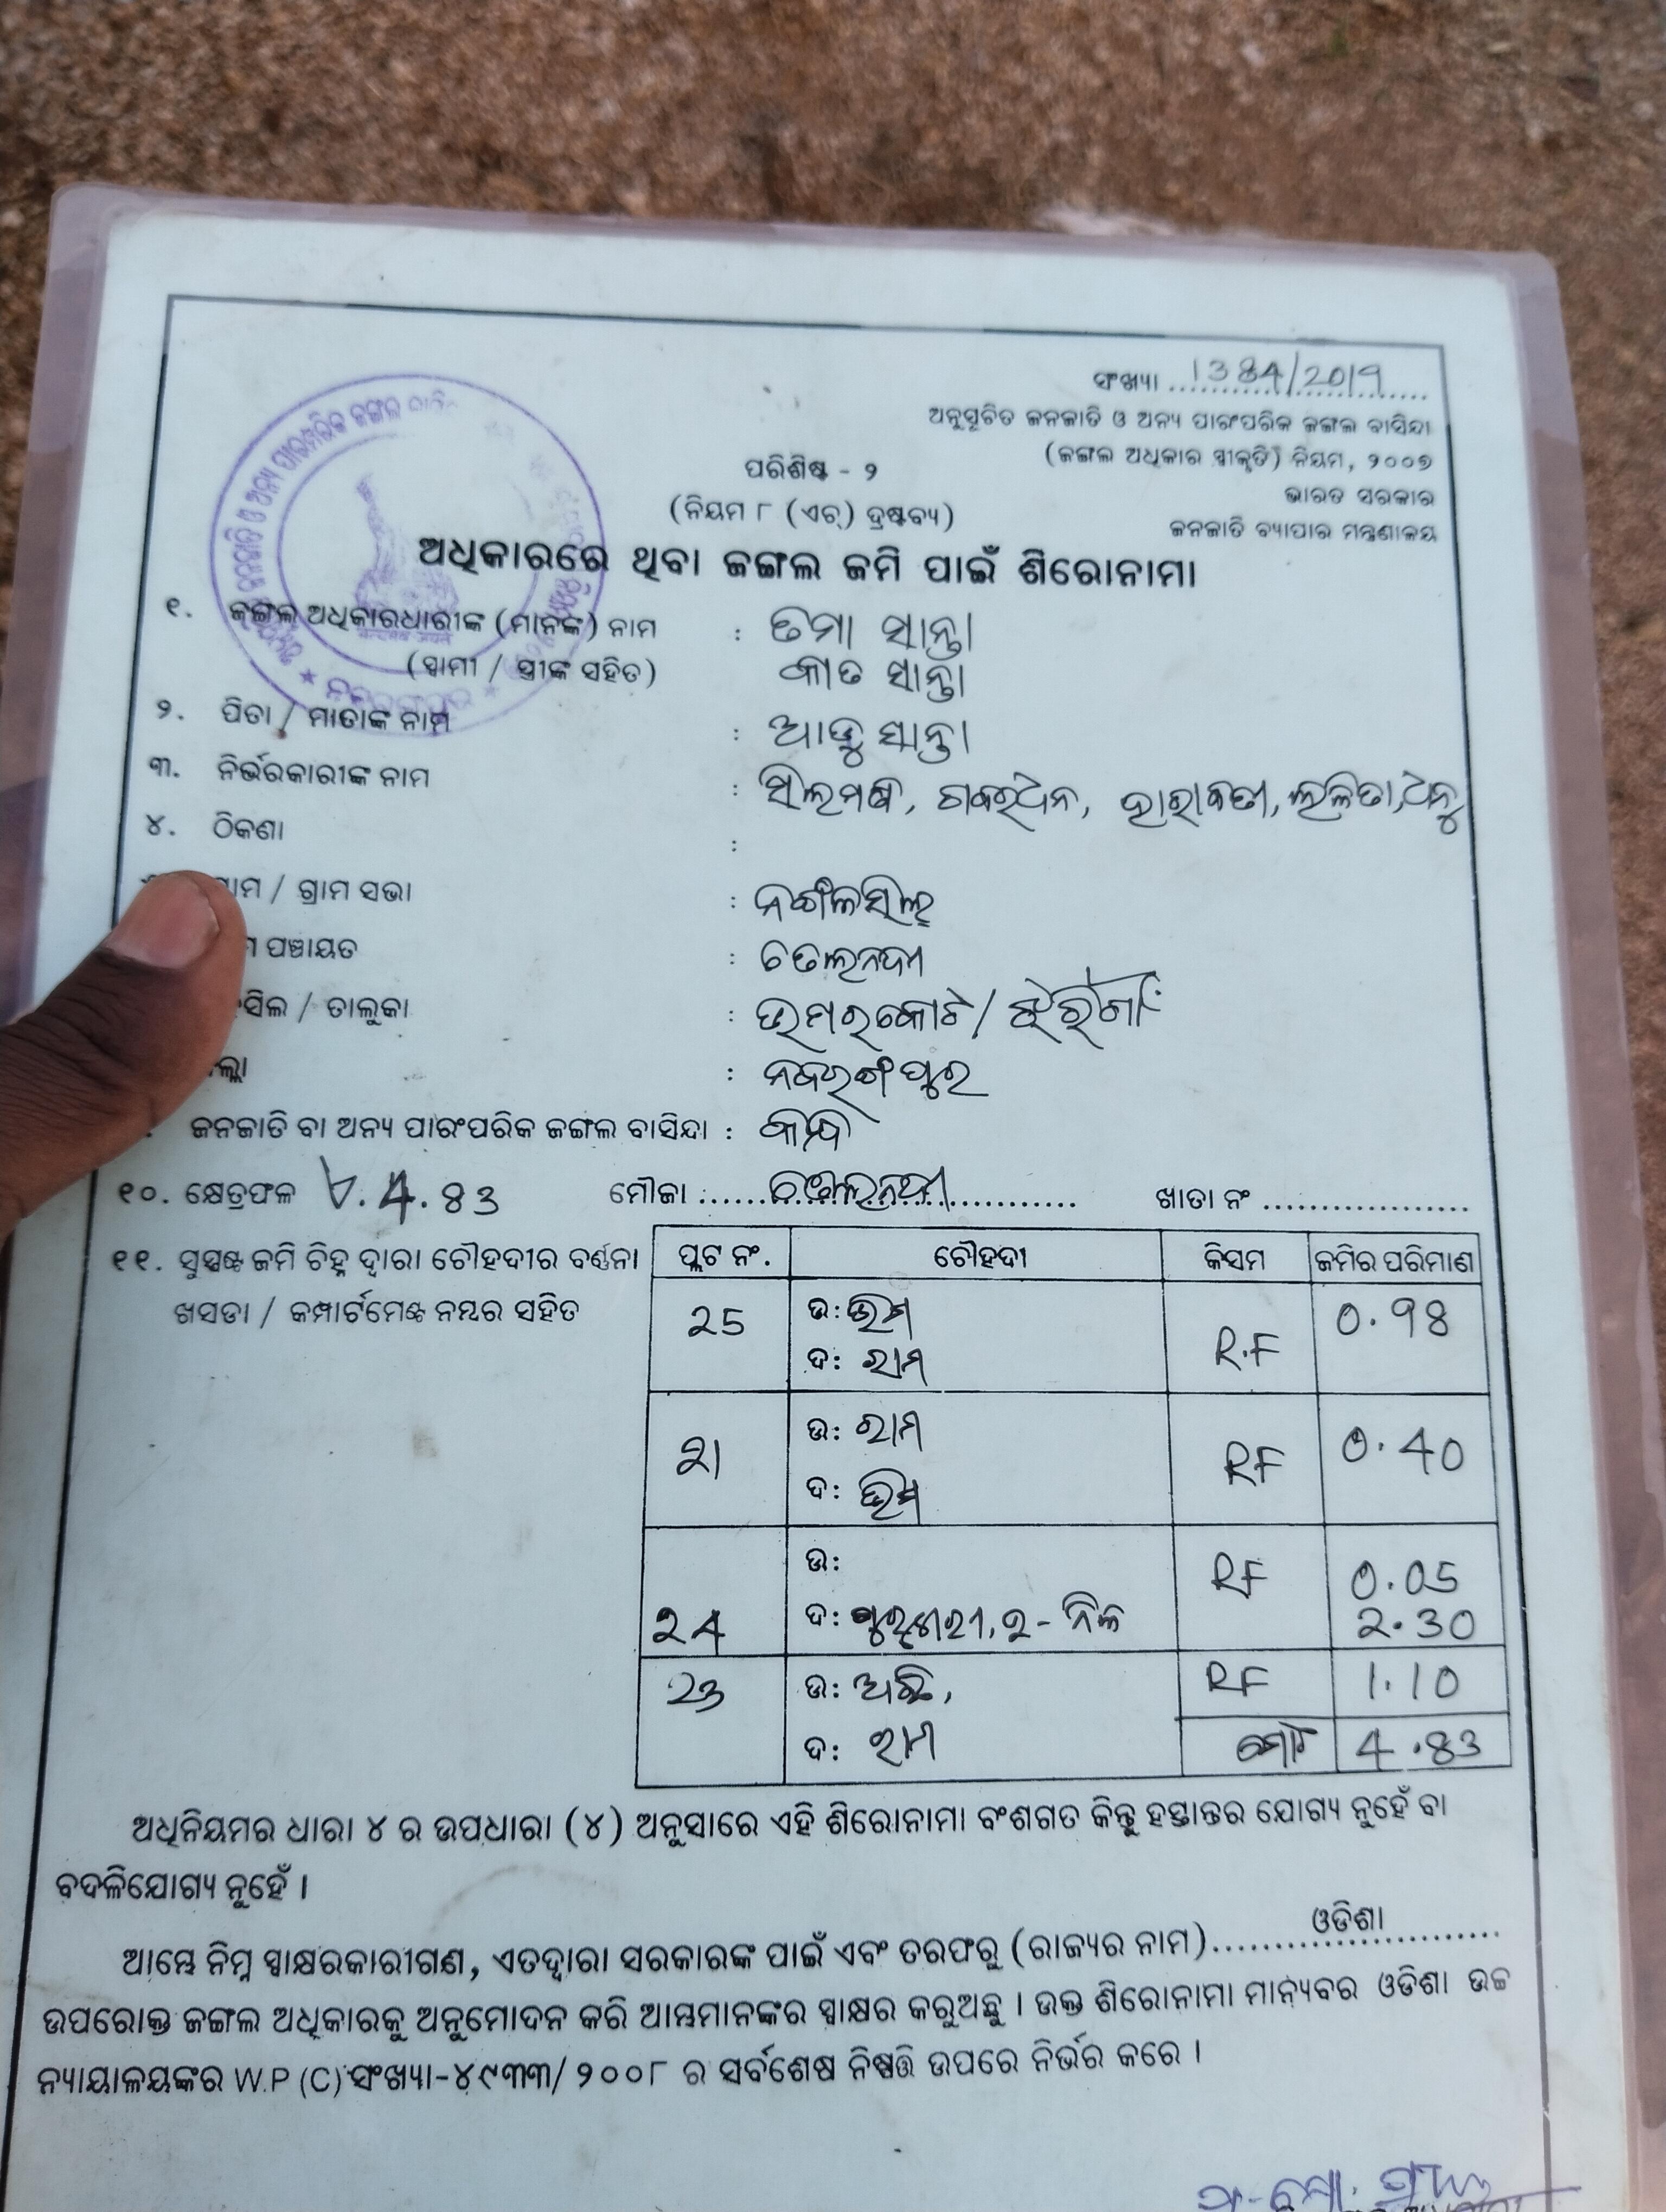 ସଂଖ୍ୟା 1384/2019
ଅନୁସୂଚିତ ଜନଜାତି ଓ ଅନ୍ୟ ପାରଂପରିକ ଜଙ୍ଗଲ ବାସିନ୍ଦା
(ଜଙ୍ଗଲ ଅଧିକାର ସ୍ୱୀକୃତି) ନିୟମ, ୨୦୦୭
ଭାରତ ସରକାର
ଜନଜାତି ବ୍ୟାପାର ମନ୍ତ୍ରଣାଳୟ
ପରିଶିଷ୍ଟ - ୨
(ନିୟମ ୮ (ଏଚ୍) ଦ୍ରଷ୍ଟବ୍ୟ)
ଅଧିକାରରେ ଥିବା ଜଙ୍ଗଲ ଜମି ପାଇଁ ଶିରୋନାମା
୧. ଜଙ୍ଗଲ ଅଧିକାରଧାରୀଙ୍କ (ମାନଙ୍କ) ନାମ : ତମା ସାନ୍ତା
(ସ୍ୱାମୀ / ସ୍ତ୍ରୀଙ୍କ ସହିତ) ସାନ୍ତା
୨. ପିତା / ମାତାଙ୍କ ନାମ : ସାନ୍ତା
୩. ନିର୍ଭରକାରୀଙ୍କ ନାମ : ଲଳିତା,
୪. ଠିକଣା :
ଗ୍ରାମ ସଭା :
ପଞ୍ଚାୟତ :
/ ତାଲୁକା : ଉମରକୋଟ / ଝରିଗାଁ
: ନବରଙ୍ଗପୁର
ଜନଜାତି ବା ଅନ୍ୟ ପାରଂପରିକ ଜଙ୍ଗଲ ବାସିନ୍ଦା : କନ୍ଧ
୧୦. କ୍ଷେତ୍ରଫଳ 4.83 ମୌଜା ଖାତା ନଂ
୧୧. ସୁସ୍ପଷ୍ଟ ଜମି ଚିହ୍ନ ଦ୍ୱାରା ଚୌହଦୀର ବର୍ଣ୍ଣନା
ଖସଡା / କମ୍ପାର୍ଟମେଣ୍ଟ ନମ୍ବର ସହିତ
ପ୍ଲଟ ନଂ. ଚୌହଦୀ କିସମ ଜମିର ପରିମାଣ
25 ଉ: ଭିମ R.F 0.98
ଦ: ରାମ
21 ଉ: ରାମ RF 0.40
ଦ: ଭିମ
24 ଉ: RF 0.05
ଦ: 2.30
23 ଉ: RF 1.10
ଦ: ରାମ ମୋଟ 4.83
ଅଧିନିୟମର ଧାରା ୪ ର ଉପଧାରା (୪) ଅନୁସାରେ ଏହି ଶିରୋନାମା ବଂଶଗତ କିନ୍ତୁ ହସ୍ତାନ୍ତର ଯୋଗ୍ୟ ନୁହେଁ ବା
ବଦଳିଯୋଗ୍ୟ ନୁହେଁ ।
ଆମ୍ଭେ ନିମ୍ନ ସ୍ୱାକ୍ଷରକାରୀଗଣ, ଏତଦ୍ଦ୍ୱାରା ସରକାରଙ୍କ ପାଇଁ ଏବଂ ତରଫରୁ (ରାଜ୍ୟର ନାମ) ଓଡିଶା
ଉପରୋକ୍ତ ଜଙ୍ଗଲ ଅଧିକାରକୁ ଅନୁମୋଦନ କରି ଆମ୍ଭମାନଙ୍କର ସ୍ୱାକ୍ଷର କରୁଅଛୁ । ଉକ୍ତ ଶିରୋନାମା ମାନ୍ୟବର ଓଡିଶା ଉଚ୍ଚ
ନ୍ୟାୟାଳୟଙ୍କର W.P (C) ସଂଖ୍ୟା-୪୯୩୩/୨୦୦୮ ର ସର୍ବଶେଷ ନିଷ୍ପତ୍ତି ଉପରେ ନିର୍ଭର କରେ ।